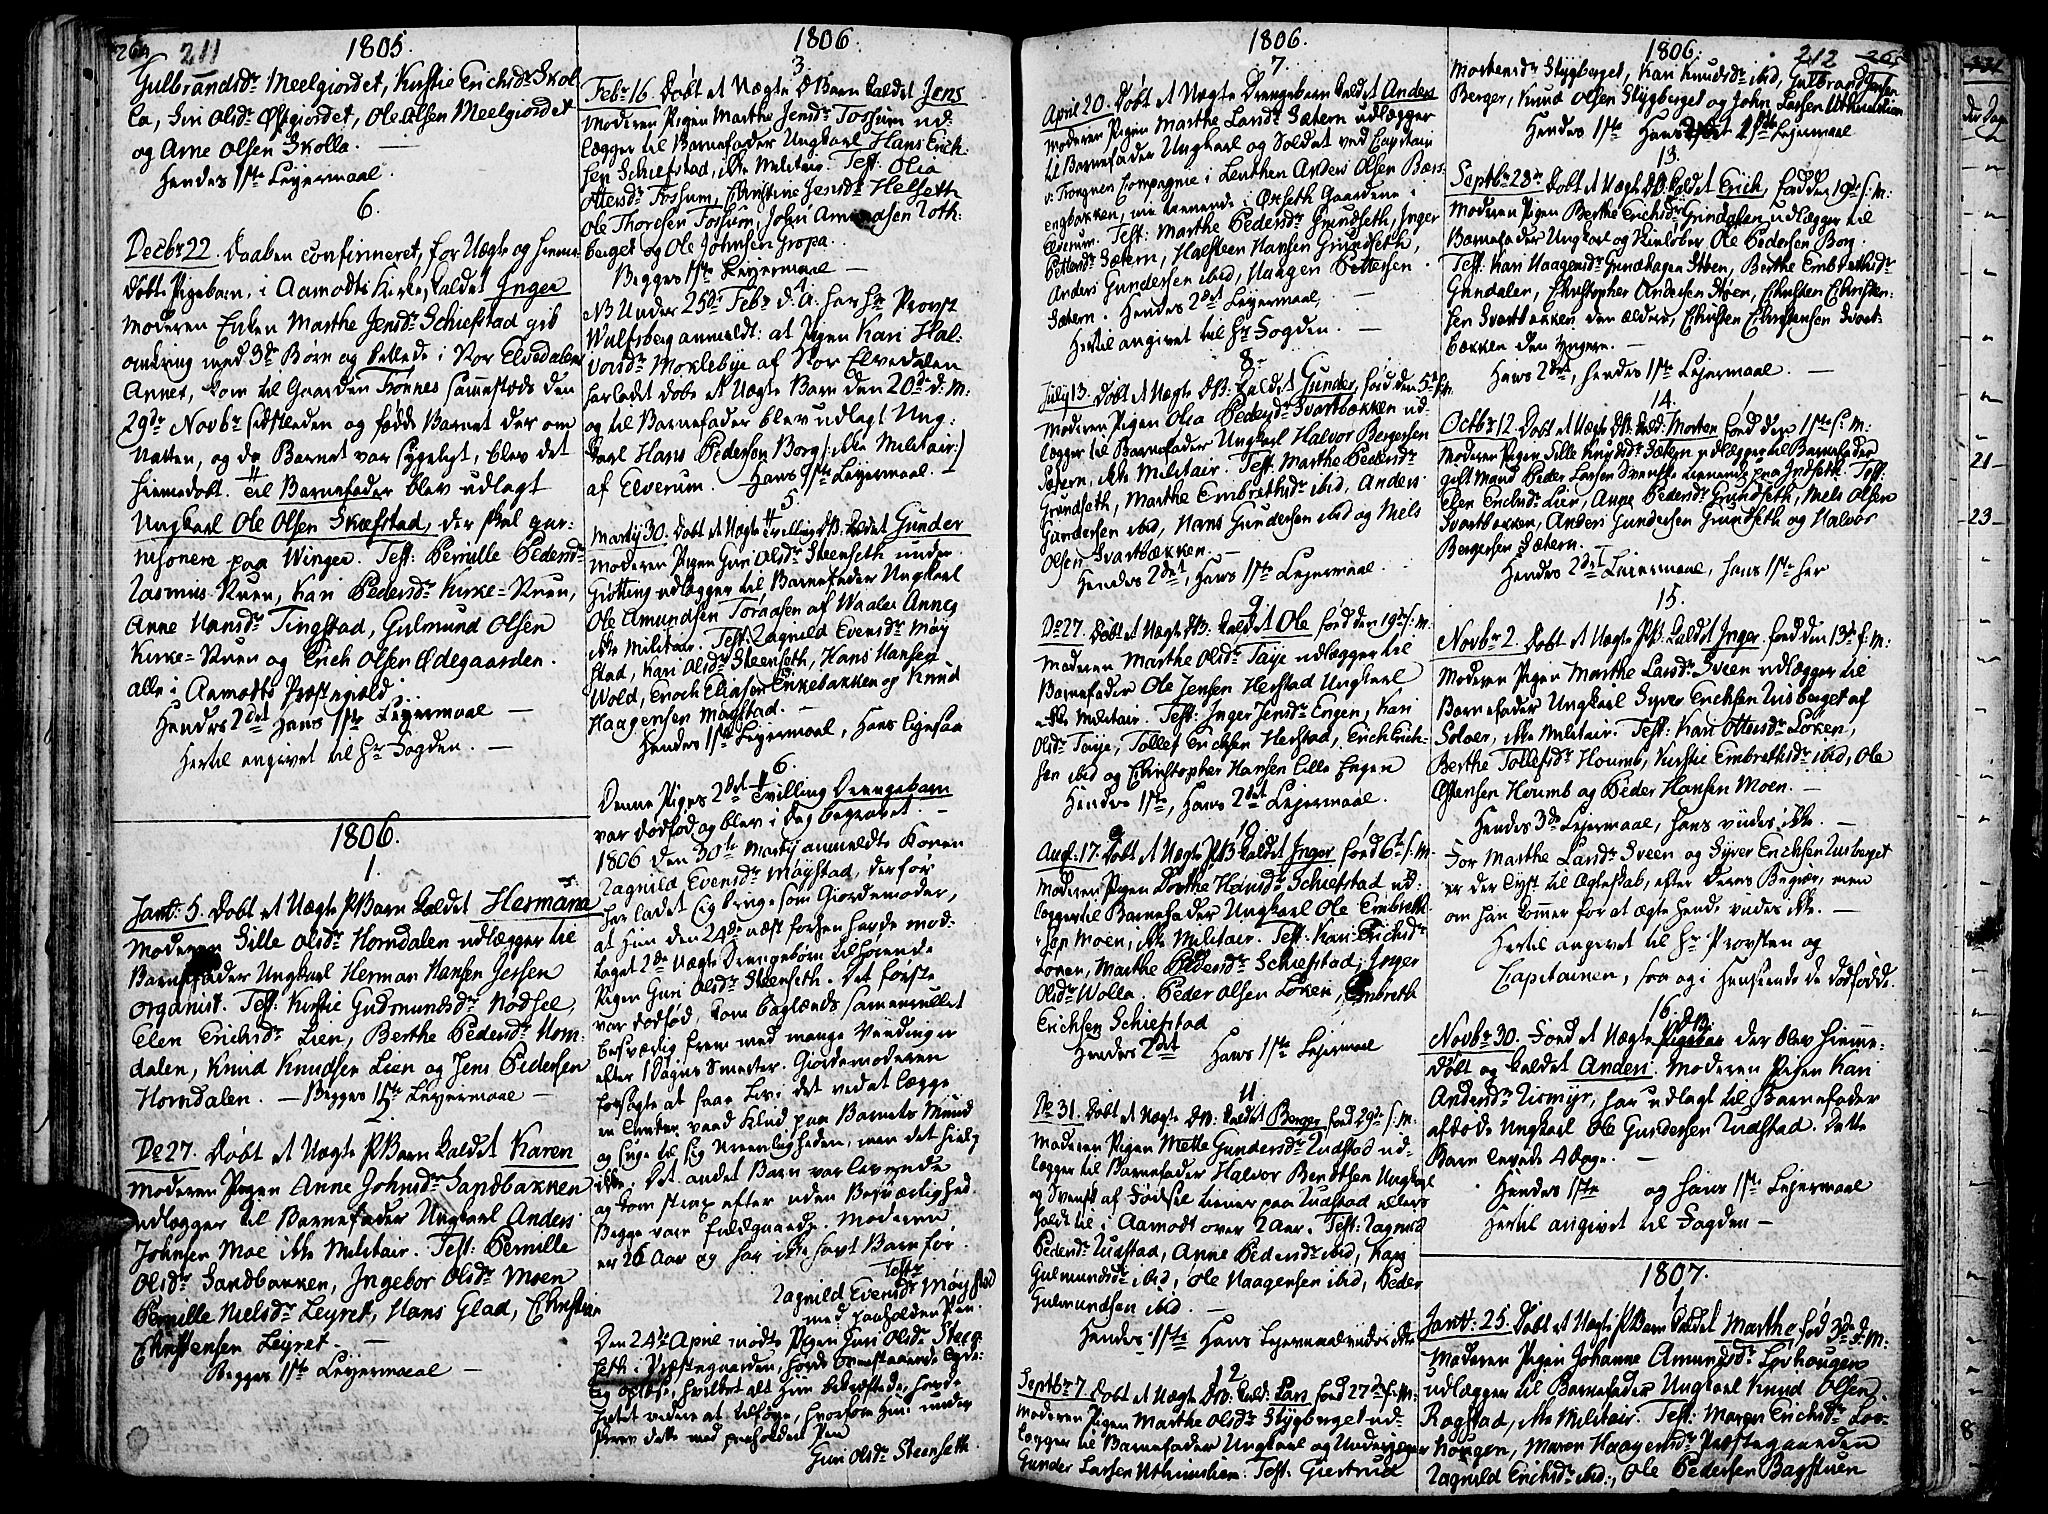 211
1805.
Gulbrandsdr Meelgiordet, Kirstie Erichsdr Skol
la, Siri Olsdr Østgiordet, Ole Olsen Meelgiordet
og Arne Olsen Skolla. —
Hendes 1ste Leyermaal.
6.
Decbr 22. Daaben confirmeret, for Uægte og hiemme
døbte Pigebarn, i Aamodts Kirke, kaldet Inger
Moderen Enken Marthe Jensdr Schiefstad gik
omkring med 3de Børn og bettlede i Stor Elvedalens
Annex, kom til Gaarden Fonnes sammesteds den
29de Novbr sidstleden og fødde Barnet der om
Natten, og da Barnet var sygeligt, blev det
hiemedøbt. Til Barnefader blev udlagt
Ungkarl Ole Olsen Skiefstad, der skal gar-
nisonere paa Winger. Test: Pernille Pedersdr
Rasmus Ruen, Kari Pedersdr Kirke-Ruen,
Anne Hansdr Tingstad, Gulmund Olsen
Kirke-Ruen og Erich Olsen Ødegaarden.
alle i Aamodts Præstegield.
Hendes 2det Hans 1ste Leyermaal —
Hertil angivet til Hr Fogden. —
1806.
1.
Janr: 5. Døbt et Uægte P Barn kaldet Hermana
Moderen Sille Olsdr Horndalen udlægger til
Barnefader Ungkarl Herman Hansen Jessen
Organist. Test: Kirstie Gudmundsdr Nødsel,
Elen Erichsdr Lien, Berthe Pedersdr Horn-
dalen, Knud Knudsen Lien og Jens Pedersen
Horndalen. — Begges 1ste Leyermaal —
2.
Do 27. Døbt et Uægte P Barn kaldet Karen
Moderen Pigen Anne Johnsdr Sandbakken
udlægger til Barnefader Ungkarl Anders
Johnsen Moe ikke Militair. Test: Pernille
Olsdr Sandbakken, Ingebor Olsdr Moen
Pernille Nielsdr Leyret, Hans Glad, Christian
Christensen Leyret. —
Begges 1ste Leyermaal —
1806
3.
Febr 16. Døbt et Uægte D Barn kaldet Jens
Moderen Pigen Marthe Jensdr Fossum ud-
lægger til Barnefader Ungkarl Hans Erich-
sen Schiefstad, ikke Militair. Test: Olia
Ottersdr Fossum, Christine Jensdr Helseth
Ole Thoresen Fossum, John Amundsen Roth-
berget og Ole Johnsen Gropa.
Begges 1ste Leyermaal —
4
NB Under 25de Febr d. A. har Hr Provst
Wulfsberg anmeldt: at Pigen Kari Hal-
vorsdr Moklebye af Stor Elvedalen
har ladet døbe et Uægte Barn den 20de d: M:
og til Barnefader blev udlagt Ung-
karl Hans Pedersen Borg (: ikke Militair:)
af Elverum. Hans 1ste Leyermaal. —
5
Martij 30. Døbt et Uægte Tvilling DB: kaldet Gunder
Moderen Pigen Guri Olsdr Steenseth under
Giøtting udlægger til Barnefader Ungkarl
Ole Amundsen Toraasen af Waaler Annex
ikke Militair. Test: Ragnild Evensdr Møy
stad, Kari Olsdr Steenseth, Hans Hansen
Wold, Enoch Eliasen Enkebakken og Knud
Haagensen Møystad. —
Hendes 1ste Leyermaal, Hans ligesaa
6.
Denne Piges 2det Tvilling Drengebarn
var dødfød og blev i dag begravet —
1806 den 30te Martij anmeldte Konen
Ragnild Evensdr Møystad, der før
har ladet sig bruge som Giordemoder,
at hun den 24de næst forhen havde mod-
taget 2de Uægte Drengebørn tilhørende
Pigen Guri Olsdr Steenseth. Det første
var dødfød, kom baglænds sammenrullet
besværlig frem med mange Vendinger
efter 1 Døgns Smerter. Giordemoderen
forsøgte at faae Liv i det ved at lægge
en vaad Klud paa Barnets Mund
og suge til sig Ureenligheden, men det hialp
ikke. Det andet Barn var levende
og kom strax efter uden Besværlighed.
Begge vare fuldgaaede. Moderen
er 26 Aar og har ikke havt Barn før.
Test:
Ragnild Evensdr Møystad
med paaholden Pen.
Den 24de April mødte Pigen Guri Olsdr Steen
seth i Præstegaarden, hørde ovenstaaende tyde-
lig oplæse, hvilket alt hun bekræftede, havde
intet videre at tilføye, hvorfore hun under
skrev dette med paaholden Pen
Guri Olsdr Steenseth
1806.
7.
April 20. Døbt et Uægte Drengebarn kaldet Anders
Moderen Pigen Marthe Larsdr Sætern udlægger
til Barnefader Ungkarl og Soldat ved Capitain
v: Krognen Compagnie i Leuthen Anders Olsen Bærs-
engbakken, nu tienende i Ørseth Gaardene i
Elverum. Test: Marthe Pedersdr Grundseth, Inger
Pettersdr Sætern, Halsteen Hansen Grundseth,
Anders Gundersen ibid, Haagen Pettersen
Sætern. Hendes 2det Leyermaal, —
Hertil angivet til Hr Fogden. —
8.
July 13. Døbt et Uægte DB: kaldet Gunder, fød den 5te s. M.
Moderen Pigen Olia Pedersdr Svartbækken ud-
lægger til Barnefader Ungkarl Halvor Bergersen
Sætern, ikke Militair. Test: Marthe Pedersdr
Grundseth, Marthe Embrethsdr ibid, Anders
Gundersen ibid, Hans Gundersen ibid og Niels
Olsen Svartbækken. —
Hendes 2det, Hans 1ste Lejermaal.
9.
Do 27. Døbt et Uægte DB: kaldet Ole fød den 19de s: M:
Moderen Marthe Olsdr Taije udlægger til
Barnefader Ole Jensen Herstad Ungkarl
ikke Militair. Test: Inger Jensdr Engen, Kari
Olsdr Taije, Tollef Erichsen Herstad, Erich Erich-
sen ibid og Christopher Hansen Lille Engen
Hendes 1ste, Hans 2det Lejermaal. —
10.
Augt: 17. Døbt et Uægte PB kaldet Inger fød 6te s: M
Moderen Pigen Dorthe Hansdr Schiefstad ud-
lægger til Barnefader Ungkarl Ole Embreth-
sen Moen, ikke Militair. Test: Kari Erichsdr
Løken, Marthe Pedersdr Schiefstad, Inger
Olsdr Wolla, Peder Olsen Løken, Embreth
Erichsen Schiefstad
Hendes 2det Hans 1ste Lejermaal
11.
Do 31. Døbt et Uægte DB: kaldet Berger fød 29de s: M:
Moderen Pigen Mette Gundersdr Rudstad ud-
lægger til Barnefader Halvor Berdtsen Ungkarl
og Svensk af Fødsel tiener paa Rudstad ellers
holdt til i Aamodt over 2 Aar. Test: Ragnild
Pedersdr Rudstad, Anne Pedersdr ibid, Kari
Gulmundsdr ibid, Ole Haagensen ibid, Peder
Gulmundsen ibid. —
Hendes 1ste Hans Lejermaal vides ikke
12.
Septbr 7. Døbt et Uægte DB: kald: Lars, fød 27de f: M:
Moderen Pigen Marthe Olsdr Stygberget ud-
lægger til Barnefader Ungkarl og Underjæger
Gunder Larsen Uthuuslien. Test: Giertrud
1806. 212
Mortensdr Stygberget, Kari Knudsdr ibid, Gulbrand Jensen
Berger, Knud Olsen Stygberget og John Larsen Uthuuslien
Hendes 1ste Hans 1ste Lejermaal
13.
Septbr 28de Døbt et Uægte DB: kaldet Erich, fød den 19de s: M:
Moderen Pigen Berthe Erichsdr Grindalen udlægger til
Barnefader Ungkarl og Skieløber Ole Pedersen Borg.
Test: Kari Haagensdr Grindhagen Støen, Berthe Embrethsdr
Grindalen, Christopher Andersen Støen, Christen Christen-
sen Svartbækken den ældere, Christen Christensen Svart-
bækken den Yngere. —
Hans 2det, Hendes 1ste Lejermaal. —
14.
Octbr 12. Døbt et Uægte DB: kald: Morten fød den 1ste s: M:
Moderen Pigen Sille Knudsdr Sætern udlægger til Barnefader
gift Mand Peder Larsen Svenske tienende paa Indseth. Test:
Elen Erichsdr Lier, Anne Pedersdr Grundseth, Niels Olsen
Svartbækken, Anders Gundersen Grundseth og Halvor
Bergersen Sætern.
Hendes 2det Leiermaal, Hans 1ste her
15.
Novbr 2. Døbt et Uægte PB: kaldet Inger fød den 13de f: M:
Moderen Pigen Marthe Larsdr Sveen udlægger til
Barnefader Ungkarl Syver Erichsen Risberget af
Soløer, ikke Militair. Test: Kari Ottersdr Løken,
Berthe Tollefsdr Houmb, Kirstie Embrethsdr ibid, Ole
Østensen Houmb og Peder Hansen Moen. —
Hendes 3de Lejermaal, Hans vides ikke. —
For Marthe Larsdr Sveen og Syver Erichsen Risberget
er der lyst til Ægteskab, efter deres Begiær, men
om han kommer for at ægte hende vides ikke. —
Hertil angivet til Hr Provsten og
Capitainen, saa og i Henseende de Dødfødde.
16.
Novbr 30. Fød et Uægte DB: der blev hiemme-
døbt og kaldet Anders. Moderen Pigen Kari
Andersdr Rismyr, har udlagt til Barnefader
afdøde Ungkarl Ole Gundersen Rudstad. Dette
Barn levede 4 Dage. —
Hendes 1ste og Hans 1ste Lejermaal
Hertil angivet til Fogden —
1807.
1
Janr: 25. Døbt et Uægte P Barn kaldet Marthe, fød 3de d: M:
Moderen Pigen Johanne Amundsdr Lovhougen
udlægger til Barnefader Ungkarl Knud Olsen
Rogstad, ikke Militair. Test: Maren Erichsdr Lov-
hougen, Maren Haagensdr Præstegaarden
Ragnild Erichsdr ibid:, Ole Pedersen Bagstuen
21
23
8